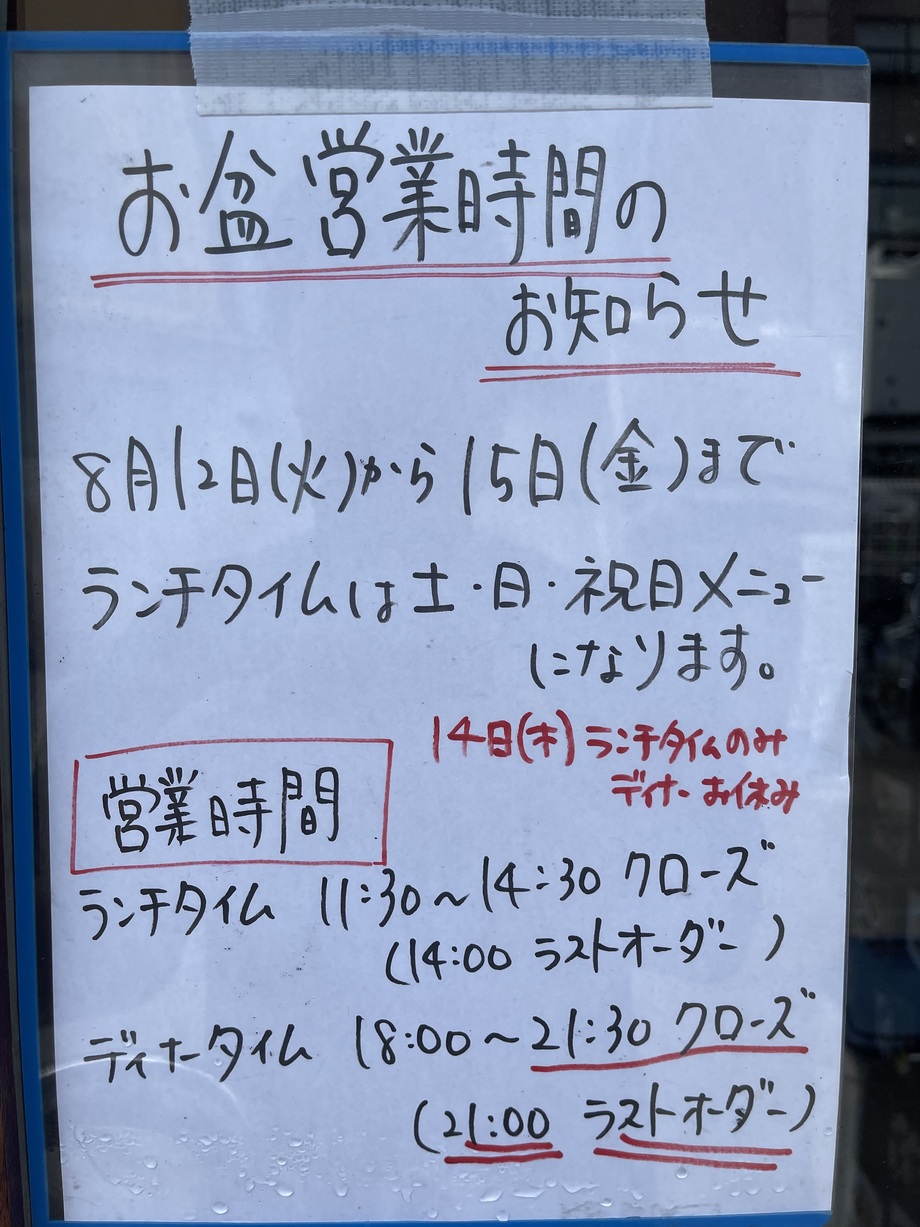 お盆営業時間の
お知らせ
8月12日(火)から15日(金)まで
ランチタイムは土・日・祝日メニュー
になります。
14日(木)ランチタイムのみ
ディナーお休み
営業時間
ランチタイム 11:30~14:30 クローズ
(14:00 ラストオーダー)
ディナータイム 18:00~21:30 クローズ
(21:00 ラストオーダー)